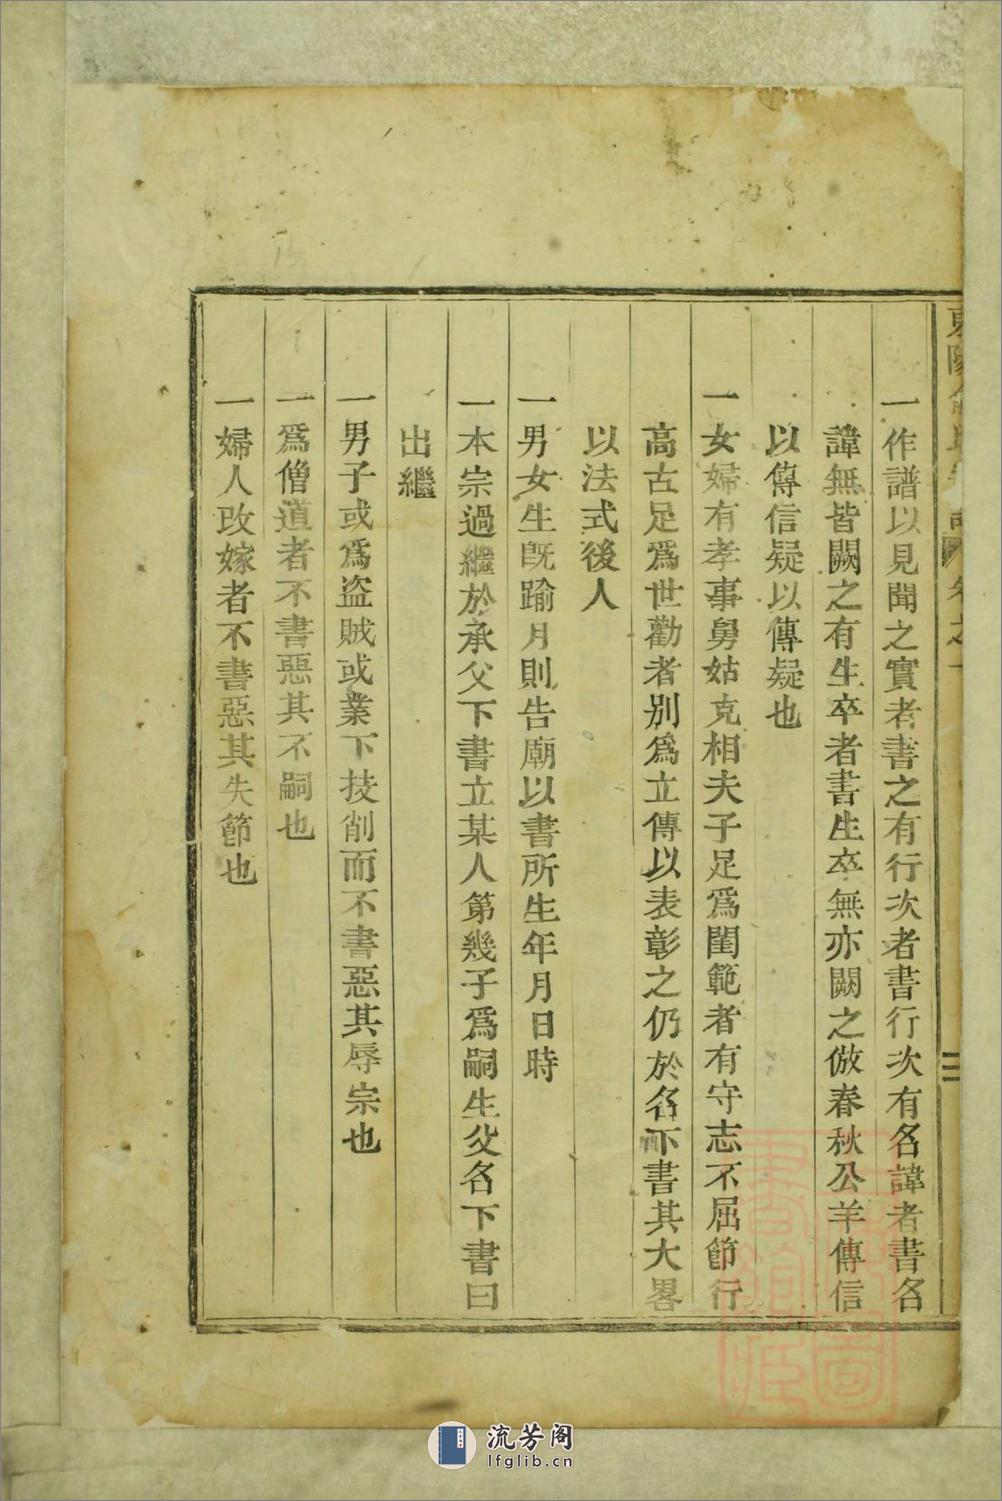 一作譜以見聞之實者書之有行次者書行次有名諱者書名
諱無皆闕之有生卒者書生卒無亦闕之倣春秋公羊傳信
以傳信疑以傳疑也
一女婦有孝事舅姑克相夫子足爲閨範者有守志不屈節行
高古足爲世勸者别爲立傳以表彰之仍於名下書其大畧
以法式後人
一男女生旣踰月則告廟以書所生年月日時
一本宗過繼於承父下書立某人第幾子爲嗣生父名下書曰
出繼
一男子或爲盜賊或業下技削而不書惡其辱宗也
一爲僧道者不書惡其不嗣也
一婦人改嫁者不書惡其失節也
流芳阁
lfglib.cn